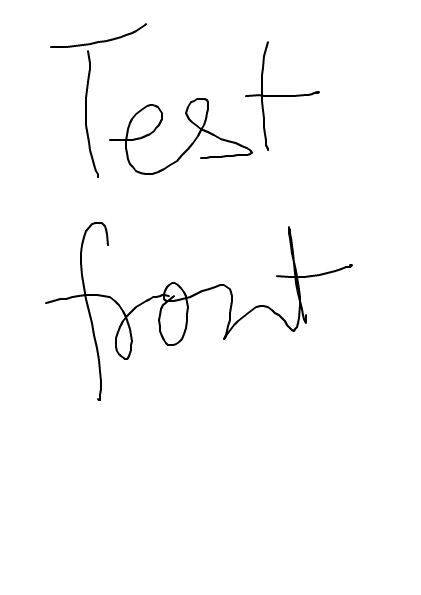 Test
front